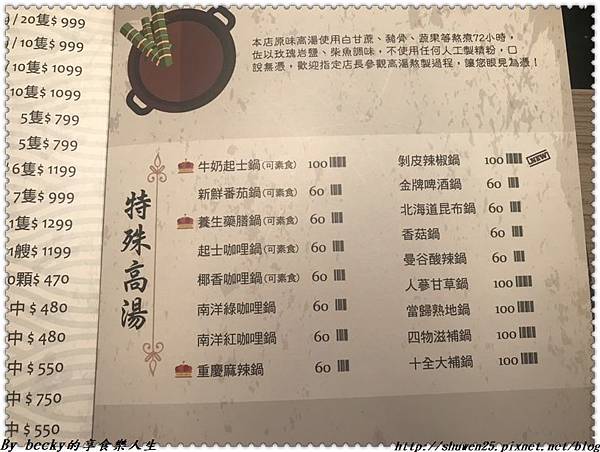 /20隻$ 999
/ 10隻$ 999
/ 10隻$ 1099
10隻$ 1099
5隻$ 799
5隻$ 799
/6隻$ 1199
7隻$ 999
1隻$ 1299
1艘$ 1199
0顆$ 470
中 $ 480
中 $ 480
中 $ 550
中 $ 750
中 $ 550
本店原味高湯使用白甘蔗、豬骨、蔬果等熬煮72小時，
佐以玫瑰岩鹽、柴魚調味，不使用任何人工製精粉，口
說無憑，歡迎指定店長參觀高湯熬製過程，讓您眼見為憑！
特殊高湯
牛奶起士鍋(可素食) 100
新鮮番茄鍋(可素食) 60
養生藥膳鍋(可素食) 60
起士咖哩鍋(可素食) 60
椰香咖哩鍋(可素食) 60
南洋綠咖哩鍋 60
南洋紅咖哩鍋 60
重慶麻辣鍋 60
剝皮辣椒鍋 100 NEW
金牌啤酒鍋 60
北海道昆布鍋 60
香菇鍋 60
曼谷酸辣鍋 60
人蔘甘草鍋 100
當歸熟地鍋 100
四物滋補鍋 100
十全大補鍋 100
By becky的享食樂人生
http://shuwen25.pixnet.net/blog